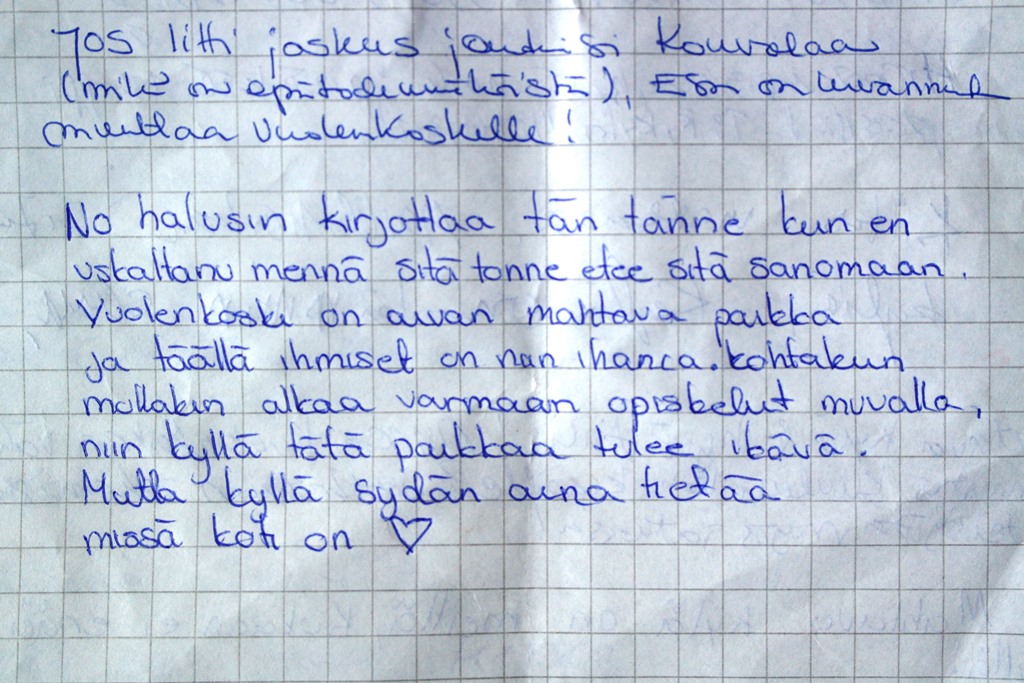 Jos Iitti joskus joutuisi Kouvolaan
(mikä on epätodennäköistä), on luvannut
muuttaa Vuolenkoskelle!
No halusin kirjottaa tän tänne kun en
uskaltanu mennä sitä tonne etee sitä sanomaan.
Vuolenkoski on aivan mahtava paikka
ja täällä ihmiset on niin ihania. kohtakun
mullakin alkaa varmaan opiskelut muualla,
niin kyllä tätä paikkaa tulee ikävä.
Mutta kyllä sydän aina tietää
missä koti on ♡